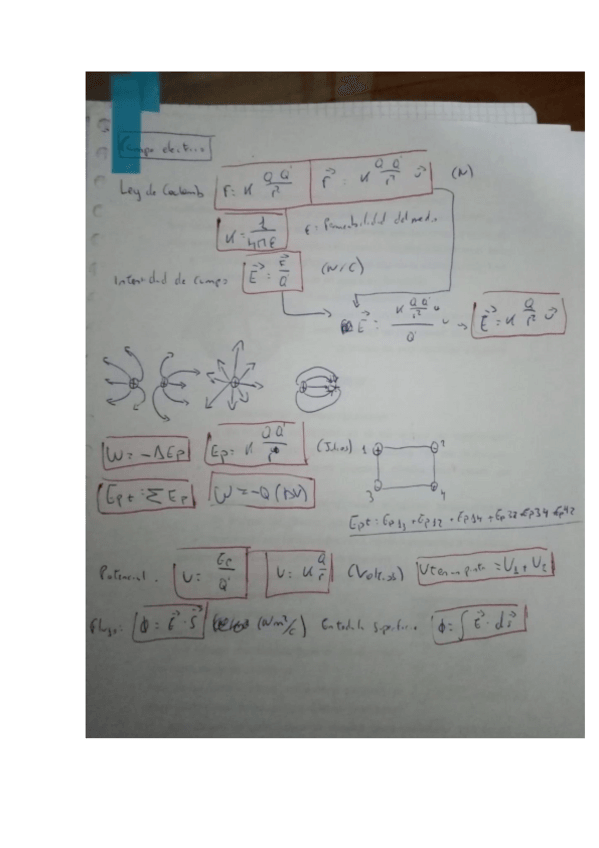 Campo electrico
Ley de Coulomb F = K Q Q' / r² F⃗ = K Q Q' / r² u⃗ (N)
K = 1 / 4πε ε = Permeabilidad del medio
Intensidad de campo E⃗ = F⃗ / Q' (N/C)
E⃗ = K Q Q' / r² u / Q' → E⃗ = K Q / r² u⃗
W = -ΔEp Ep = K Q Q' / r (Julios) 1 2
Ept = Σ Ep W = -Q (ΔV) 3 4
Ept = Ep13 + Ep12 + Ep14 + Ep32 + Ep34 + Ep42
Potencial. V = Ep / Q' V = K Q / r (Voltios) V = V1 + V2
Flujo: ϕ = E⃗ · S⃗ (Nm²/C) superficie ϕ = ∫ E⃗ · ds⃗